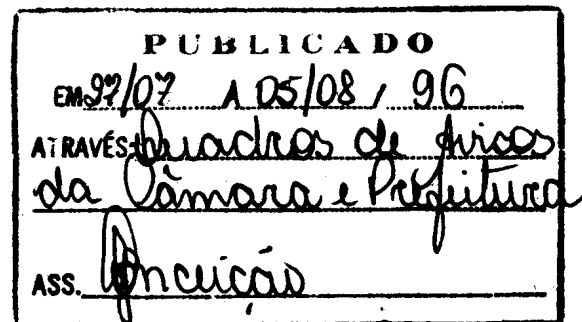 PUBLICADO
EM 27/07 A 05/08 / 96
ATRAVÉS Quadros de Avisos
da Câmara e Prefeitura
ASS. Conceição